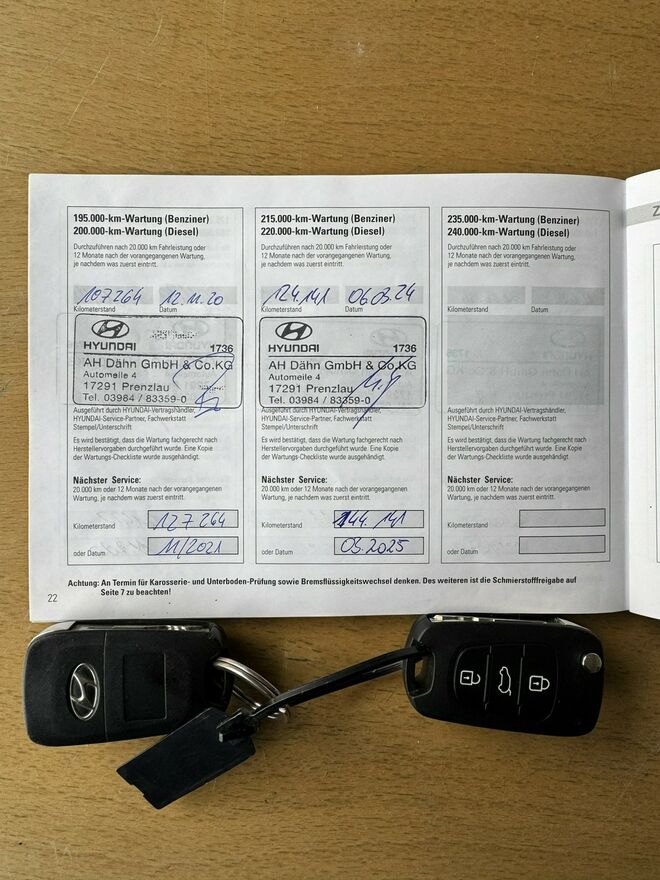 195.000-km-Wartung (Benziner)
200.000-km-Wartung (Diesel)
Durchzuführen nach 20.000 km Fahrleistung oder
12 Monate nach der vorangegangenen Wartung,
je nachdem was zuerst eintritt.
107264 12.11.20
Kilometerstand Datum
HYUNDAI 1736
AH Dähn GmbH & Co.KG
Automeile 4
17291 Prenzlau
Tel. 03984 / 83359-0
Ausgeführt durch HYUNDAI-Vertragshändler,
HYUNDAI-Service-Partner, Fachwerkstatt
Stempel/Unterschrift
Es wird bestätigt, dass die Wartung fachgerecht nach
Herstellervorgaben durchgeführt wurde. Eine Kopie
der Wartungs-Checkliste wurde ausgehändigt.
Nächster Service:
20.000 km oder 12 Monate nach der vorangegangenen
Wartung, je nachdem was zuerst eintritt.
Kilometerstand 127264
oder Datum 11/2021
215.000-km-Wartung (Benziner)
220.000-km-Wartung (Diesel)
Durchzuführen nach 20.000 km Fahrleistung oder
12 Monate nach der vorangegangenen Wartung,
je nachdem was zuerst eintritt.
124.141 06.03.24
Kilometerstand Datum
HYUNDAI 1736
AH Dähn GmbH & Co.KG
Automeile 4
17291 Prenzlau
Tel. 03984 / 83359-0
Ausgeführt durch HYUNDAI-Vertragshändler,
HYUNDAI-Service-Partner, Fachwerkstatt
Stempel/Unterschrift
Es wird bestätigt, dass die Wartung fachgerecht nach
Herstellervorgaben durchgeführt wurde. Eine Kopie
der Wartungs-Checkliste wurde ausgehändigt.
Nächster Service:
20.000 km oder 12 Monate nach der vorangegangenen
Wartung, je nachdem was zuerst eintritt.
Kilometerstand 144.141
oder Datum 03.2025
235.000-km-Wartung (Benziner)
240.000-km-Wartung (Diesel)
Durchzuführen nach 20.000 km Fahrleistung oder
12 Monate nach der vorangegangenen Wartung,
je nachdem was zuerst eintritt.
Kilometerstand Datum
Ausgeführt durch HYUNDAI-Vertragshändler,
HYUNDAI-Service-Partner, Fachwerkstatt
Stempel/Unterschrift
Es wird bestätigt, dass die Wartung fachgerecht nach
Herstellervorgaben durchgeführt wurde. Eine Kopie
der Wartungs-Checkliste wurde ausgehändigt.
Nächster Service:
20.000 km oder 12 Monate nach der vorangegangenen
Wartung, je nachdem was zuerst eintritt.
Kilometerstand
oder Datum
Achtung: An Termin für Karosserie- und Unterboden-Prüfung sowie Bremsflüssigkeitswechsel denken. Des weiteren ist die Schmierstofffreigabe auf
Seite 7 zu beachten!
22